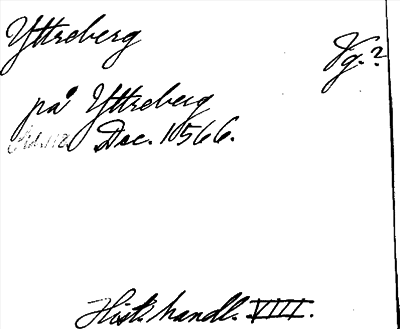 Yttreberg
Vg.?
på Yttreberg
Doc. 1566.
Hist. handl. VIII.